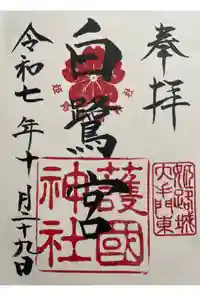 奉拝
姫路城
大手門東
白鷺宮
護國
神社
令和七年十月二十九日